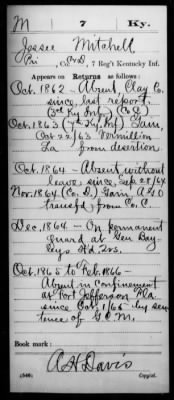 M 7 Ky.
Jessee Mitchell
Pri , Co. D, 7 Reg't Kentucky Inf.
Appears on Returns as follows:
Oct. 1862 - Absent, Clay Co.
since last report.
(3rd Ky Inf) (Co. C)
Oct. 1863 (7 Ky. Inf) Gain,
Oct 22/63 Vermillion
La from desertion
Oct. 1864 - Absent without
leave since Sep 28/64
Nov. 1864 (Co. D) Gain,
transfd from Co. C
Dec. 1864 - On permanent
guard at Gen Bay
leys Hd. Qrs.
Oct. 1865 to Feb. 1866 -
Absent in confinement
at Fort Jefferson Fla
since Oct 1/65 by sen
tence of G.C.M.
Book mark:
A H Davis
(546) Copyist.